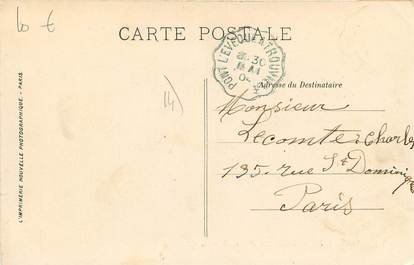 10 €
CARTE POSTALE
PONT L'EVEQUE A TROUVILLE
30
MAI
Adresse du Destinataire
14
Monsieur
Lecomte Charles
135 rue St Dominique
Paris
L'IMPRIMERIE NOUVELLE PHOTOGRAPHIQUE - PARIS.